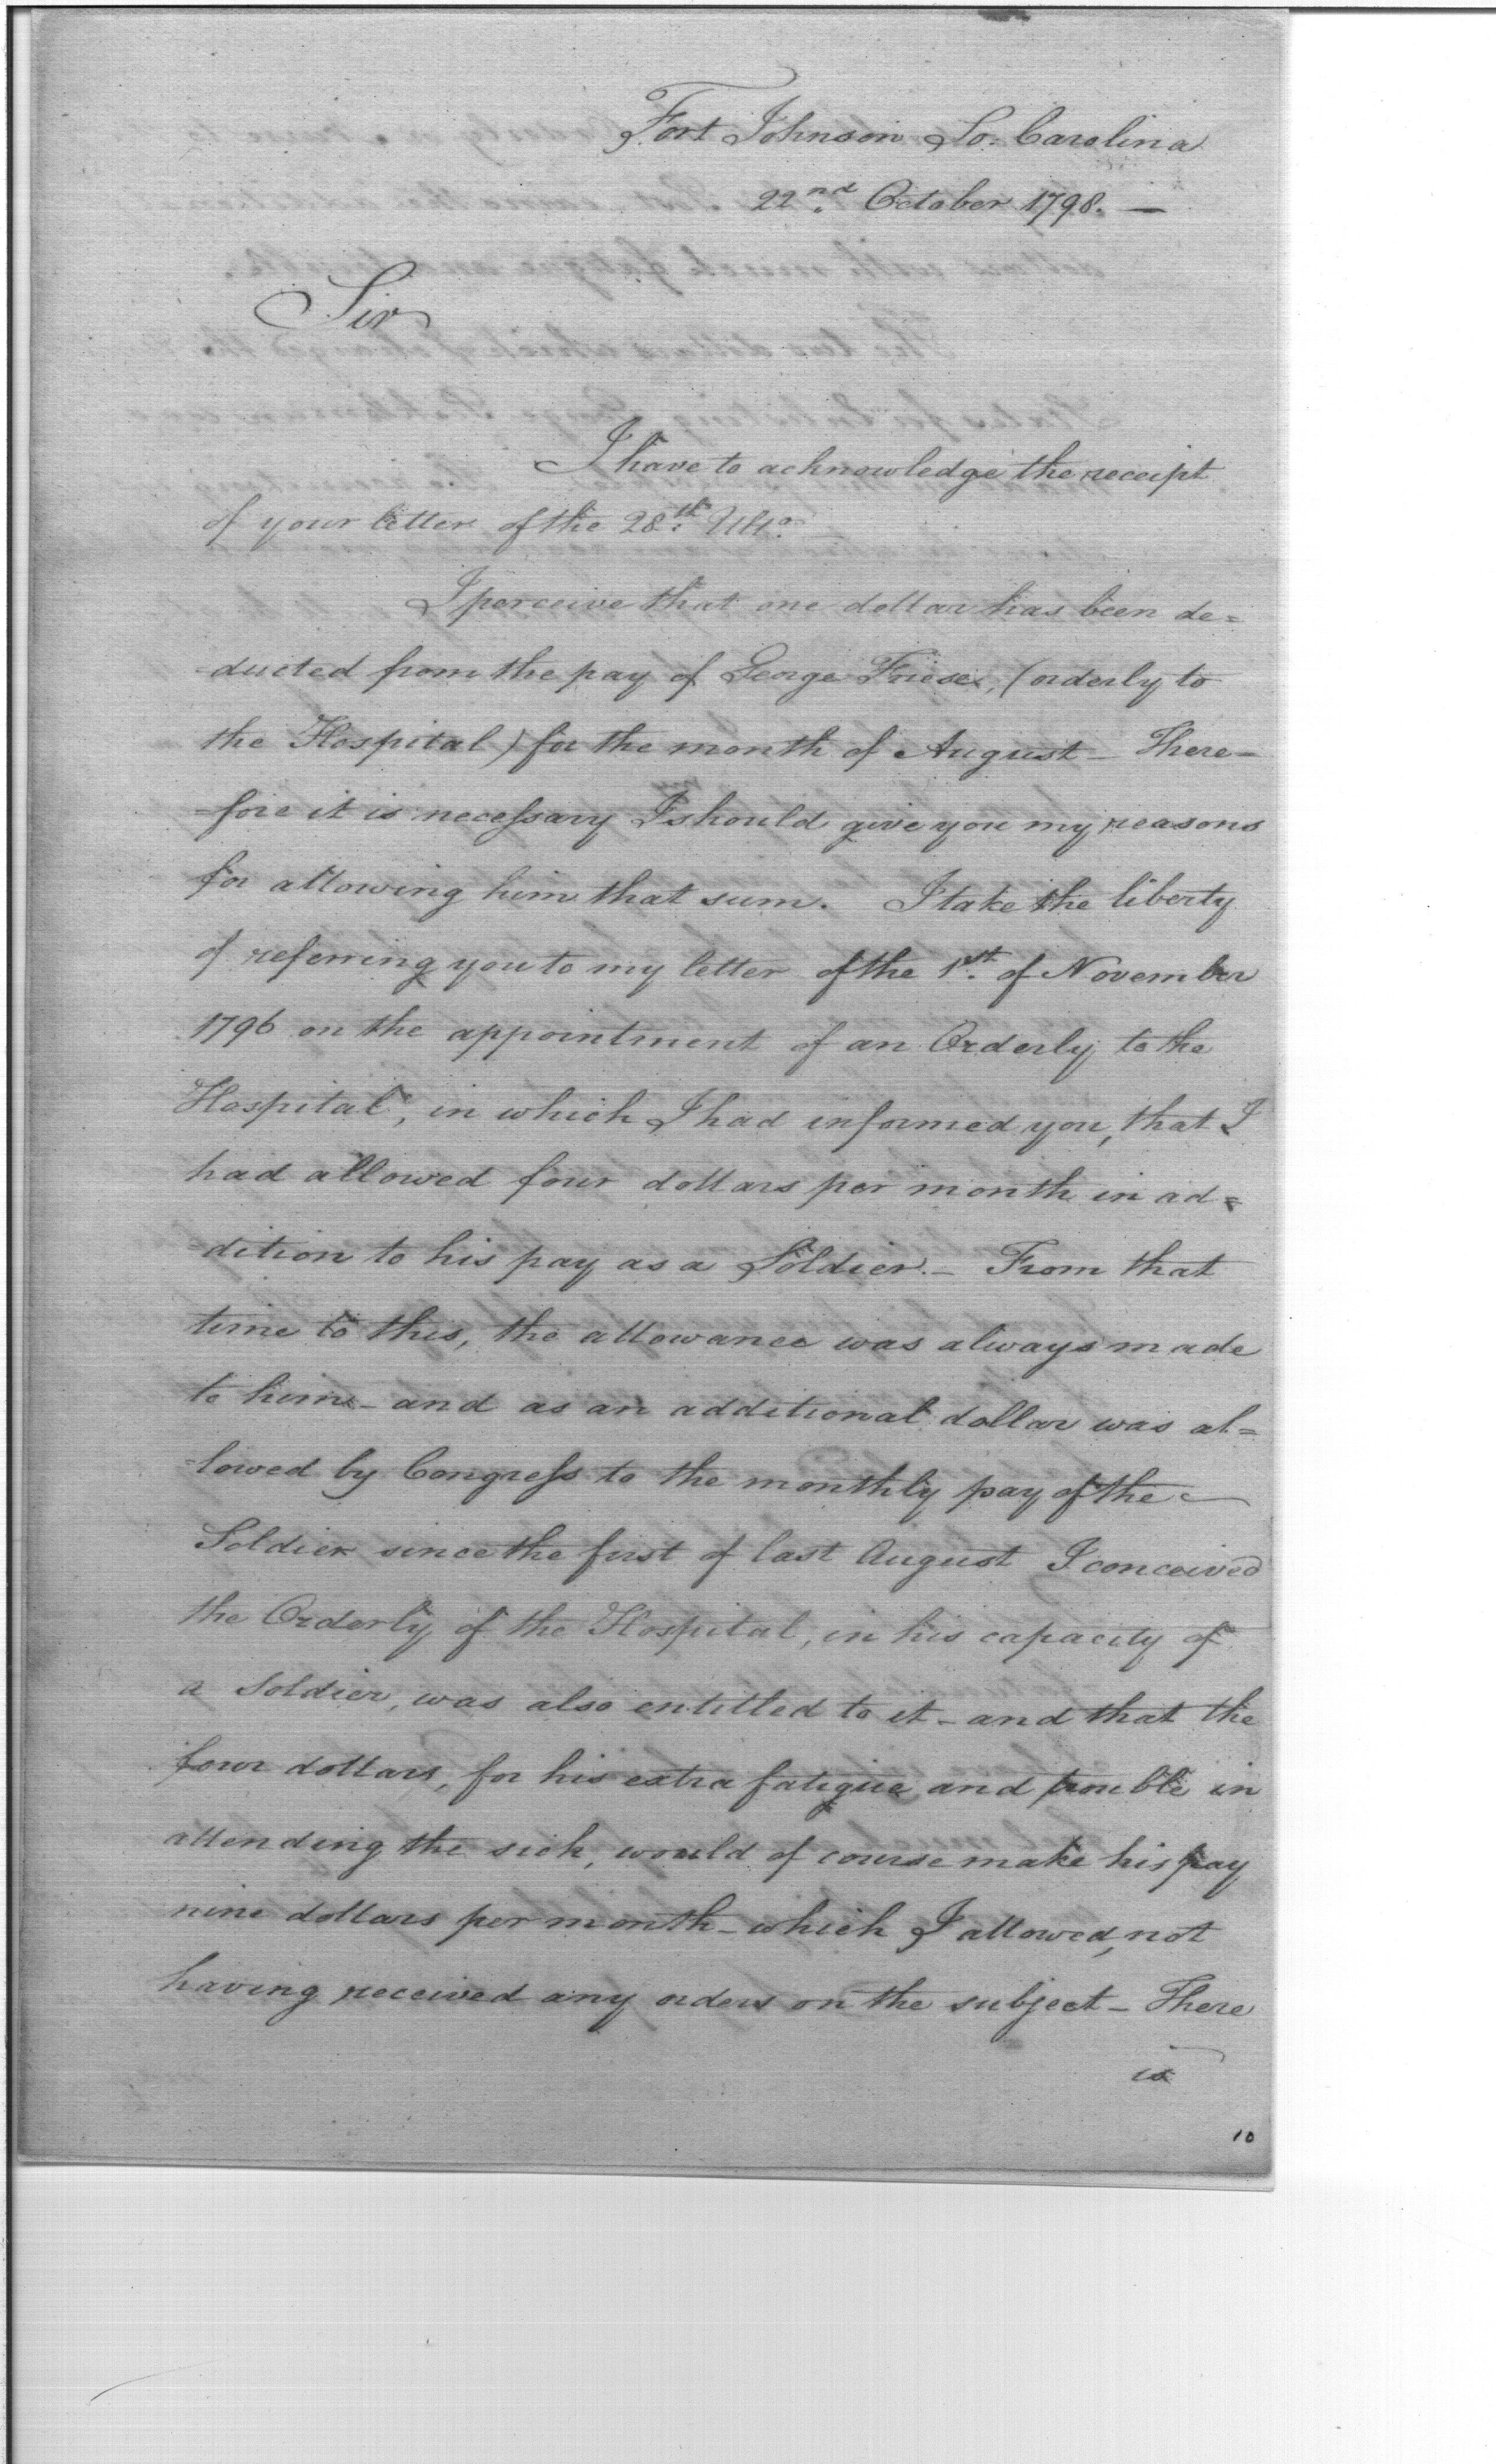 Fort Johnson So. Carolina
22nd. October 1798. —
Sir
I have to acknowledge the receipt
of your letter of the 28th. Ulto.
I perceive that one dollar has been de=
-ducted from the pay of George Friese, (orderly to
the Hospital) for the month of August - There-
-fore it is necessary I should give you my reasons
for allowing him that sum. I take the liberty
of referring you to my letter of the 1st. of November
1796 on the appointment of an Orderly to the
Hospital, in which I had informed you, that I
had allowed four dollars per month in ad=
=dition to his pay as a Soldier. - From that
time to this, the allowance was always made
to him - and as an additional dollar was al=
=lowed by Congress to the monthly pay of the
Soldier since the first of last August I conceived
the Orderly of the Hospital, in his capacity of
a Soldier, was also entitled to it - and that the
four dollars, for his extra fatigue and trouble in
attending the sick, would of course make his pay
nine dollars per month - which I allowed, not
having received any orders on the subject - There
is
10